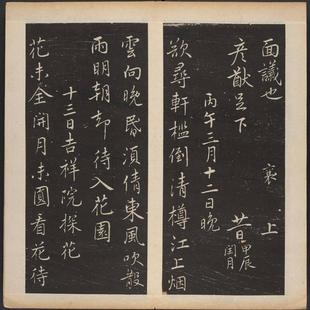 面議也 襄 上
彥猷足下 廿一日 甲辰閏月
丙午三月十二日晚
欲尋軒檻倒清樽江上烟
雲向晚昏須倩東風吹散
雨明朝却待入花園
十三日吉祥院探花
花未全開月未圓看花待